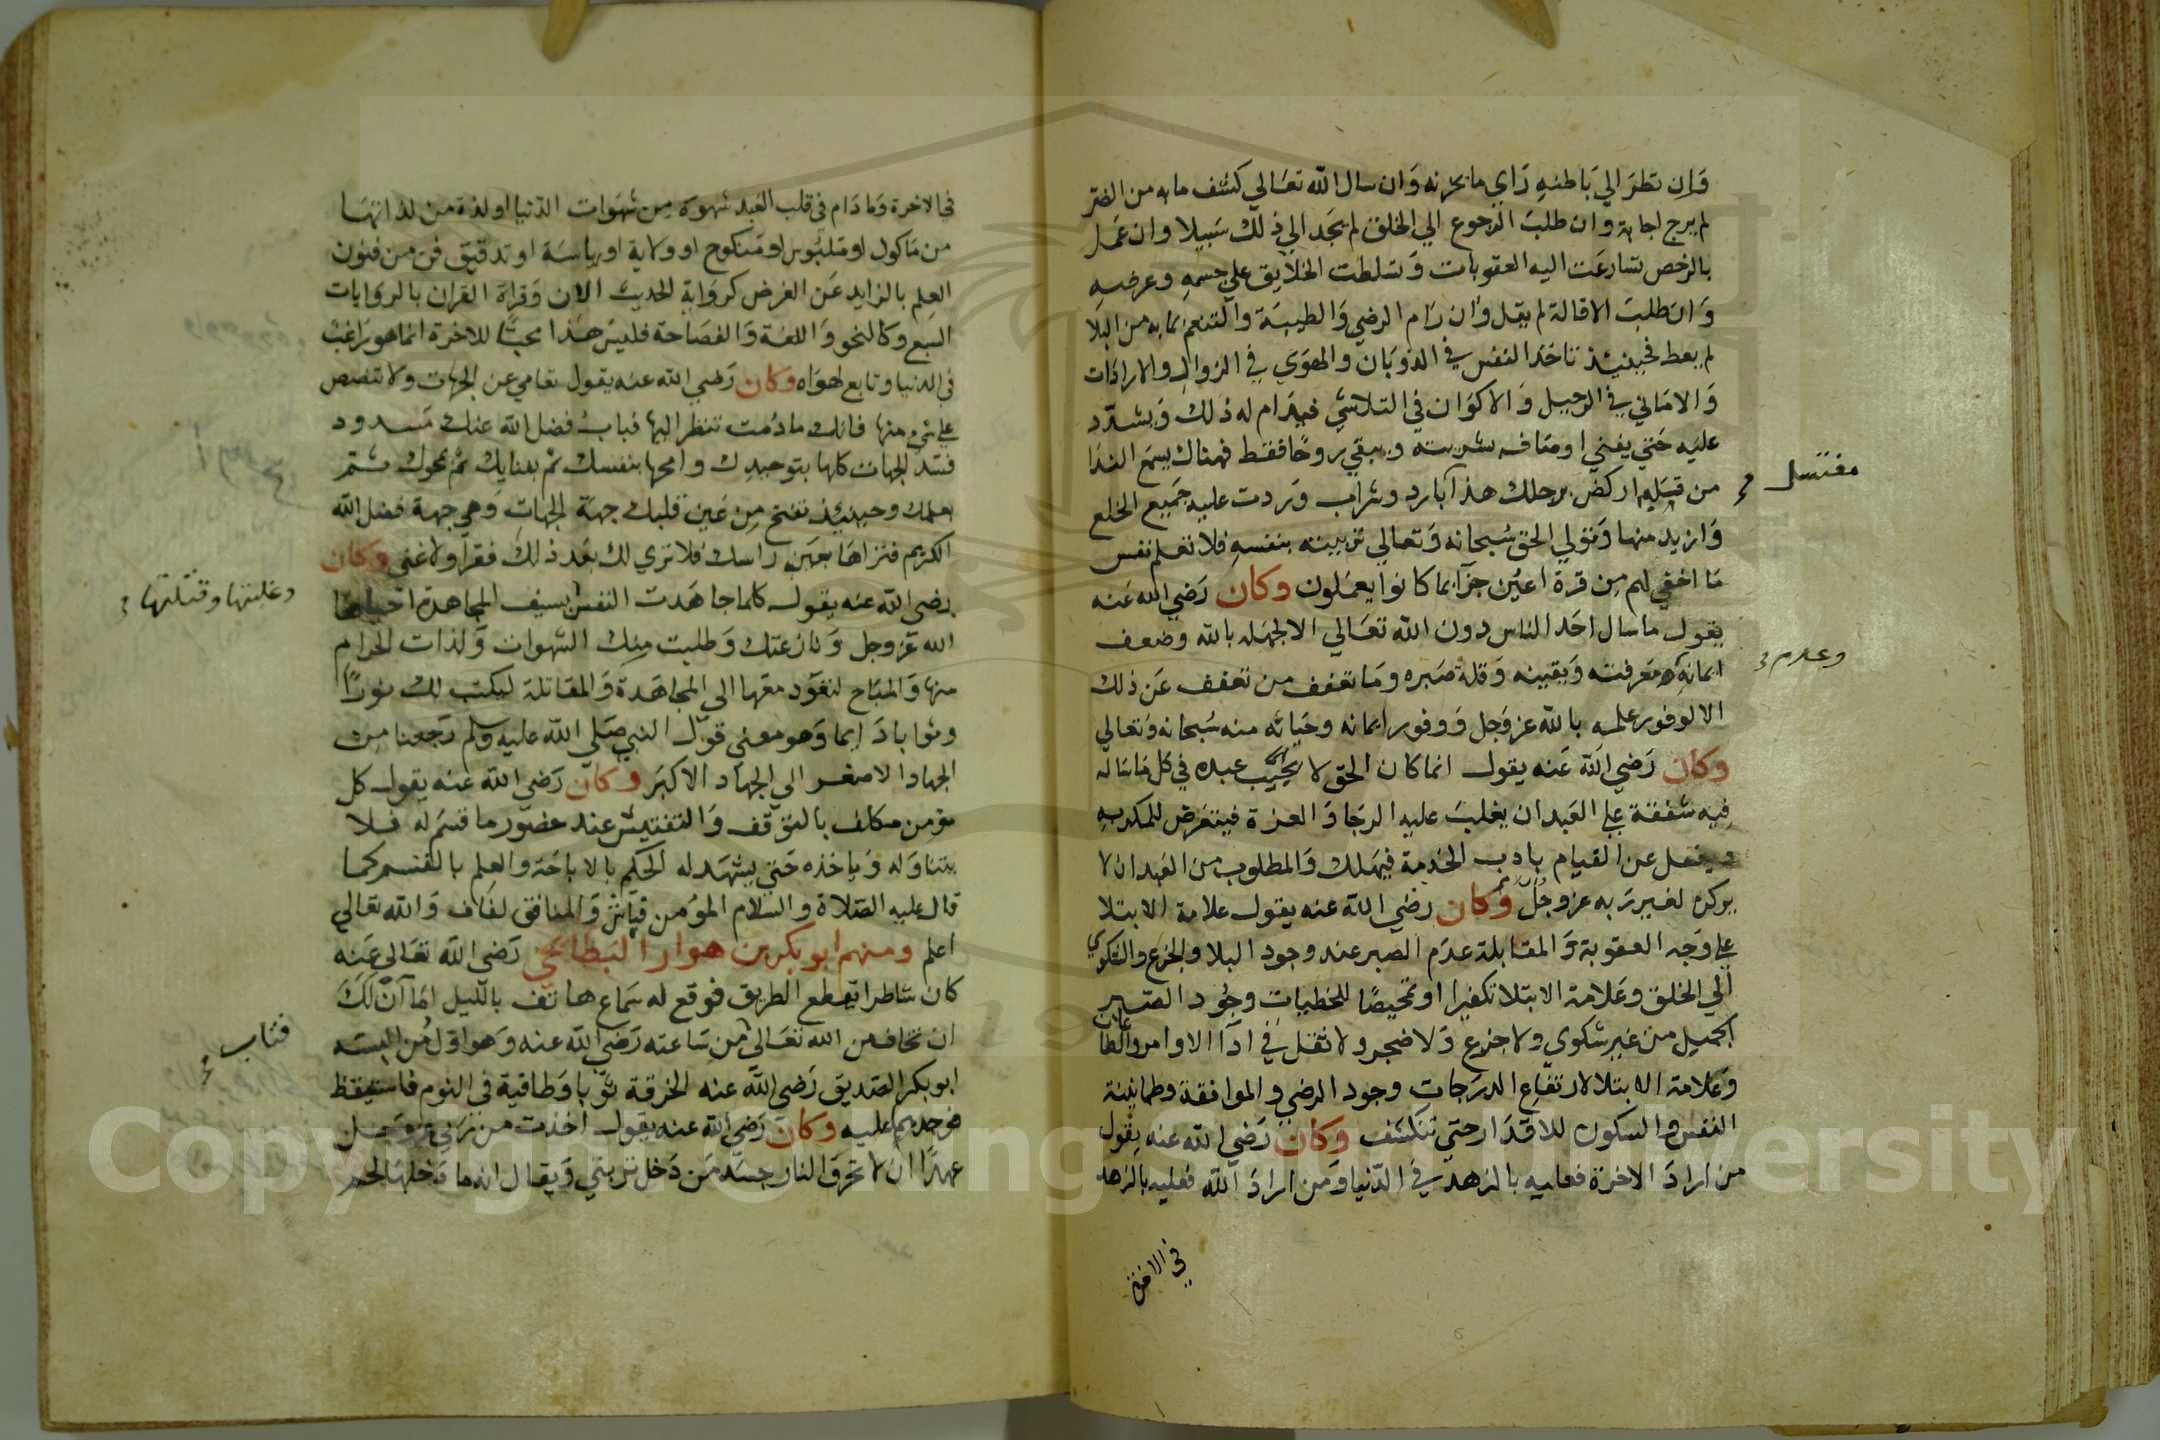 وَان نظرَ الي بَاطنهِ رَاي ما يحزنه وَان سال الله تعَالي كشف مابه من الضر
لم يرج اجابة وان طلبَ الرجوع الي الخلق لم يَجد الي ذلك سَبيلا وان عَمل
بالرخص تسارعَت اليه العقوبات وَسَلطت الخلايق علي جسمهِ وعرضهِ
وَان طلبَ الاقالة لم يقل وان رَام الرضي وَالطيبَة وَالتنعم بمابه من البَلا
لم يعط فحينئذ تاخذ النفس في الذوبَان والهوَي في الزوال والارادَات
وَالامَاني في الرحيل وَالاكوَان في التلاشي فيدَام له ذلك وَيشدّد
عليَه حَتي يفني اوصَاف بشريته ويبقي روحًا فقط فهناك يسمَع الندا
من قبَلهِ اركض برجلك هذا بارد وشراب وَردت عليهِ جَميع الخلع
مغتسل
وَازيد منها وَتولي الحق سُبحانه وَتعالي تربيته بنفسهِ فلا تعلم نفس
مَا اخفي لهم مِن قرة اعيُن جزآ بما كانوا يعمَلون وكان رَضي الله عَنه
يقول ما سال احَد الناس دون الله تعَالي الا لجهَله بالله وضعف
ايمانهِ ومَعرفته وَيقينه وَقلة صَبره ومَا تعَفف من تعفف عَن ذلك
وعدم
الا لوفور علمه بالله عز وَجل وَوفور ايمانه وحَيائه منه سُبحانه وَتعالي
وكان رَضي الله عَنه يقول انما كان الحق لا يجيب عبده في كل مَا سَاله
فيه شفقة علي العَبد ان يغلبَ عليه الرجَا وَالعزة فيتعَرض للمكر بهِ
ويغفل عن القيام بادب الخدمة فيهَلك وَالمطلوب منَ العَبد ان لا
يركن لغير رَبه عز وجلّ وكان رضي الله عنه يقول علامة الابتلا
علي وَجه العقوبة وَالمقابلة عدَم الصبر عند وجود البلا والجزع والشكوي
الي الخلق وعَلامة الابتلا تكفيرا وتمحيصًا للخطيات وجُود الصبر
الجميل من غير شكوي ولا جزع وَلا ضجر ولا ثقل في ادآ الاوامر والطاعات
وَعَلامة الابتلا لارتفاع الدرَجات وجود الرضي والموافقة وطمانينة
النفس والسكون للاقدَار حتي تنكشف وكان رَضي الله عنه يقول
من ارادَ الاخرة فعليه بالزهد في الدّنيا ومَن ارادَ الله فعليه بالزهد
في الاخرة
في الاخرة وَمادَام في قلب العَبد شهوة مِن شهَوات الدّنيا اولذة من لذاتهَا
من مَاكول اومَلبُوس اومَنكوح اوولاية اورياسَة اوتدقيق فن من فنون
العِلم بالزايد عَن الفرض كروَاية الحديث الان وَقراة القران بالروَايات
السبع وكالنحو وَاللغة وَالفصَاحة فليسَ هَذا محبًا للاخرة انما هو رَاغبٌ
في الدنيا وتابع لهوَاه وكان رَضي الله عنه يقول تعامي عن الجهات ولا تنصص
علي شئ منها فانك مادُمت تنظر اليها فبابُ فضل الله عنك مَسدود
فسّد الجهات كلها بتوحيدك وامحها بنفسك ثم بفنايك ثم بمحوك ثم
بعلمك وحينئذ تفتح مِن عَين قلبك جهَة الجهاتِ وَهي جهة فضل الله
الكريم فتراهَا بعَين راسك فلا تري لك بعَد ذلكَ فقرا ولا غني وكان
رضي الله عنه يقول كلما جاهَدت النفس بسيف المجاهدة احياها
وغلبتها وقتلتها
الله عَز وجل وَنازعتك وَطلبت منك الشهوات وَلذات الحرام
منها وَالمبَاح لتعَود معَها الي المجاهَدة وَالمقاتلة ليكتب لك نورًا
وثوابا دَايما وَهو معني قول النبي صَلي الله عليه وسلم رَجعنا من
الجهاد الاصغر الي الجهاد الاكبَر وكان رَضي الله عنه يقول كل
مؤمن مكلف بالتوقف وَالتفتيش عند حضور ما قسَم له فلا
يتناوَله وَياخذه حَتي يشهَد له الحكم بالاباحَة والعِلم بالقسم كما
قال عليهِ الصّلاة والسلام المؤمن فتاشٌ وَالمنافق لفاف وَالله تعَالي
اعلم ومنهم ابوبكر بن هوار البَطايحي رَضي الله تعَالي عَنه
كان شاطرا يقطع الطريق فوقع له سَماع هاتف بالليل امَا آنَ لكَ
ان تخاف من الله تعَالي من سَاعته رَضي الله عنه وَهو اوّل مُن البسَه
فتاب
ابوبكر الصّديق رَضي الله عنه الخرقة ثوبا وَطاقية في النوم فاستيقظ
فوجدهم عليه وكان رَضي الله عنه يقول اخذت من رَبي عز وَجل
عهدًا ان لا تحرق النار جسَد مَن دَخل تربتي وَيقال انه ما دَخلهَا لحم